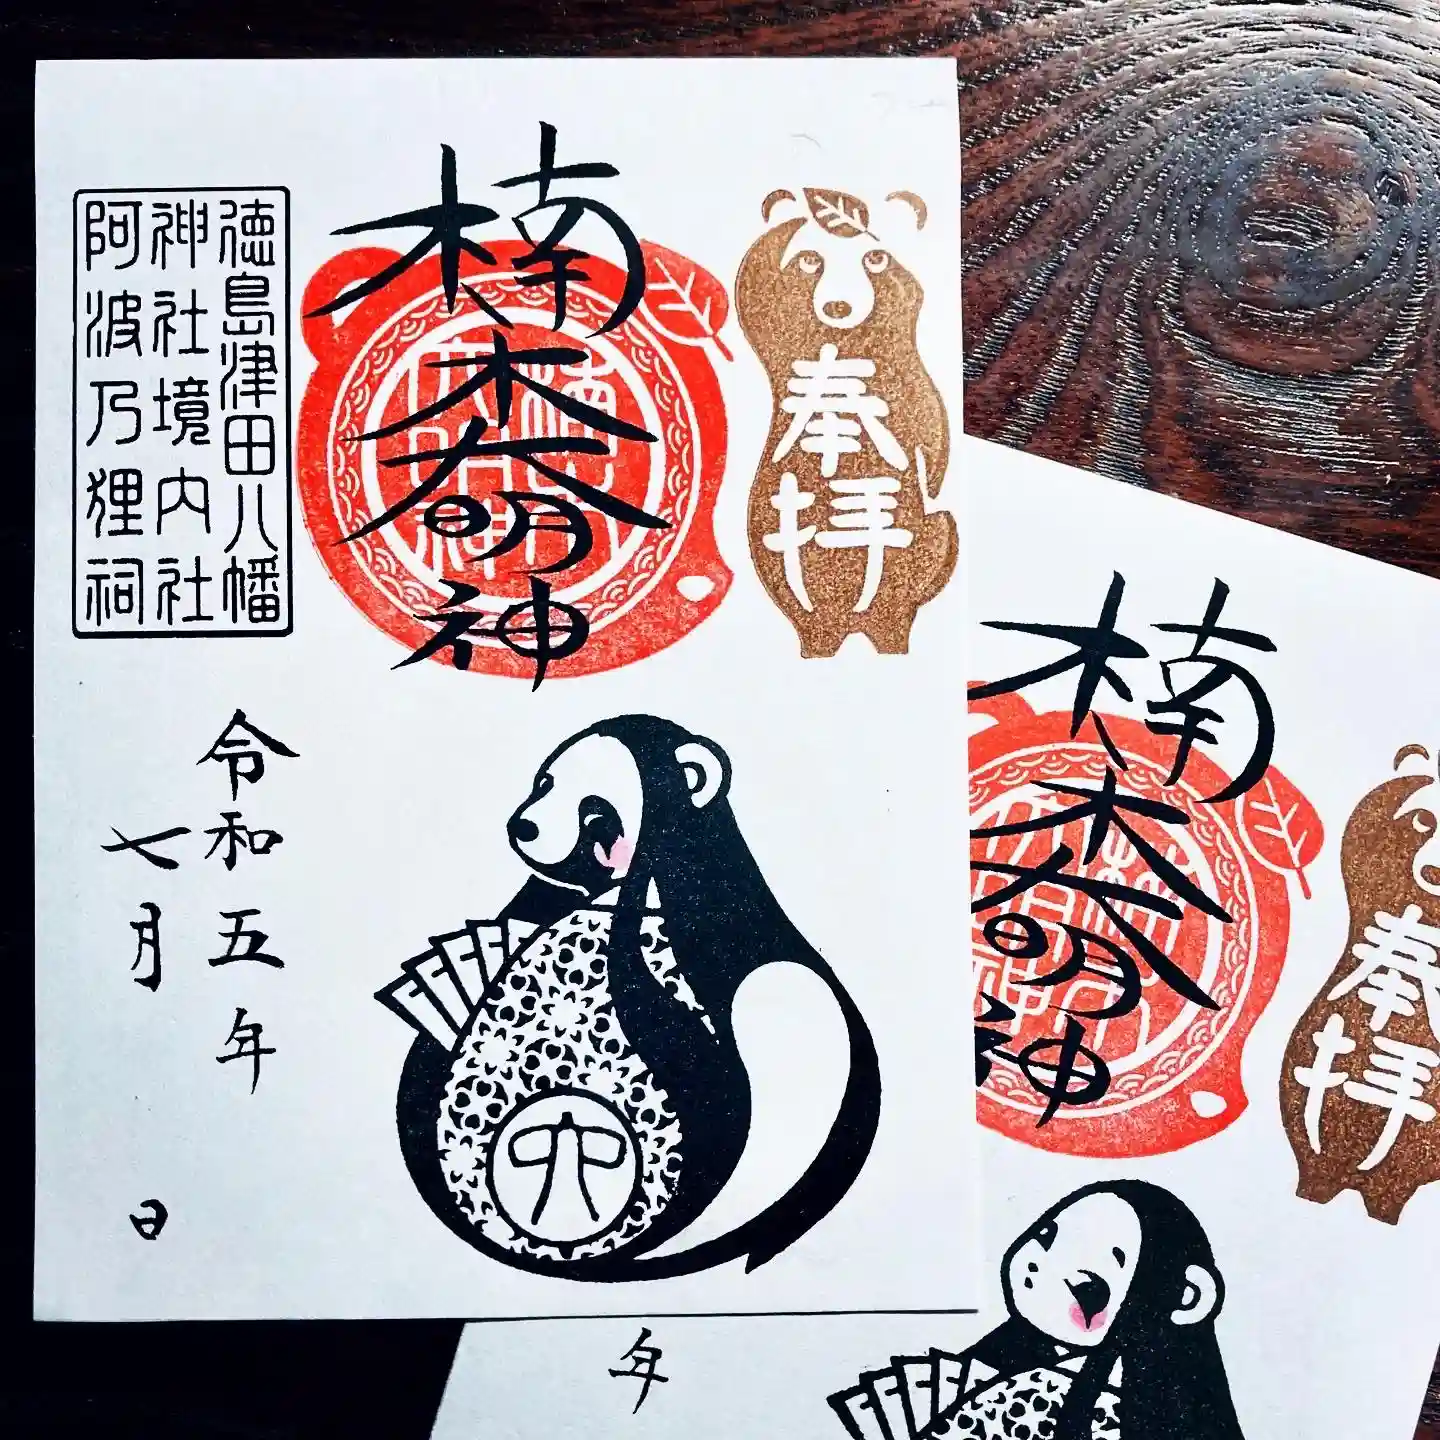 奉拝
楠木大明神
徳島津田八幡
神社境内社
阿波乃狸祠
令和五年
七月 日
六
奉拝
楠木大明神
年